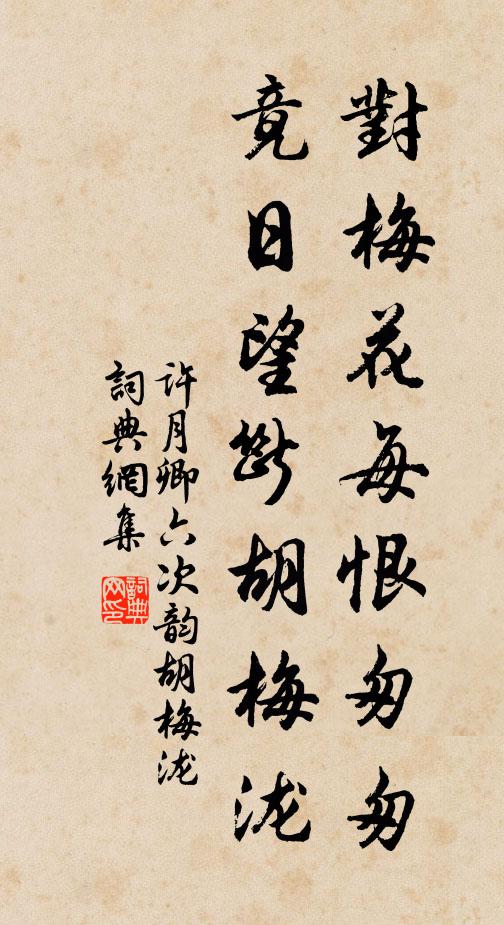 對梅花每恨匆匆
竟日望斷胡梅泷
許月卿六次韵胡梅泷
詞典網集
詞典網印